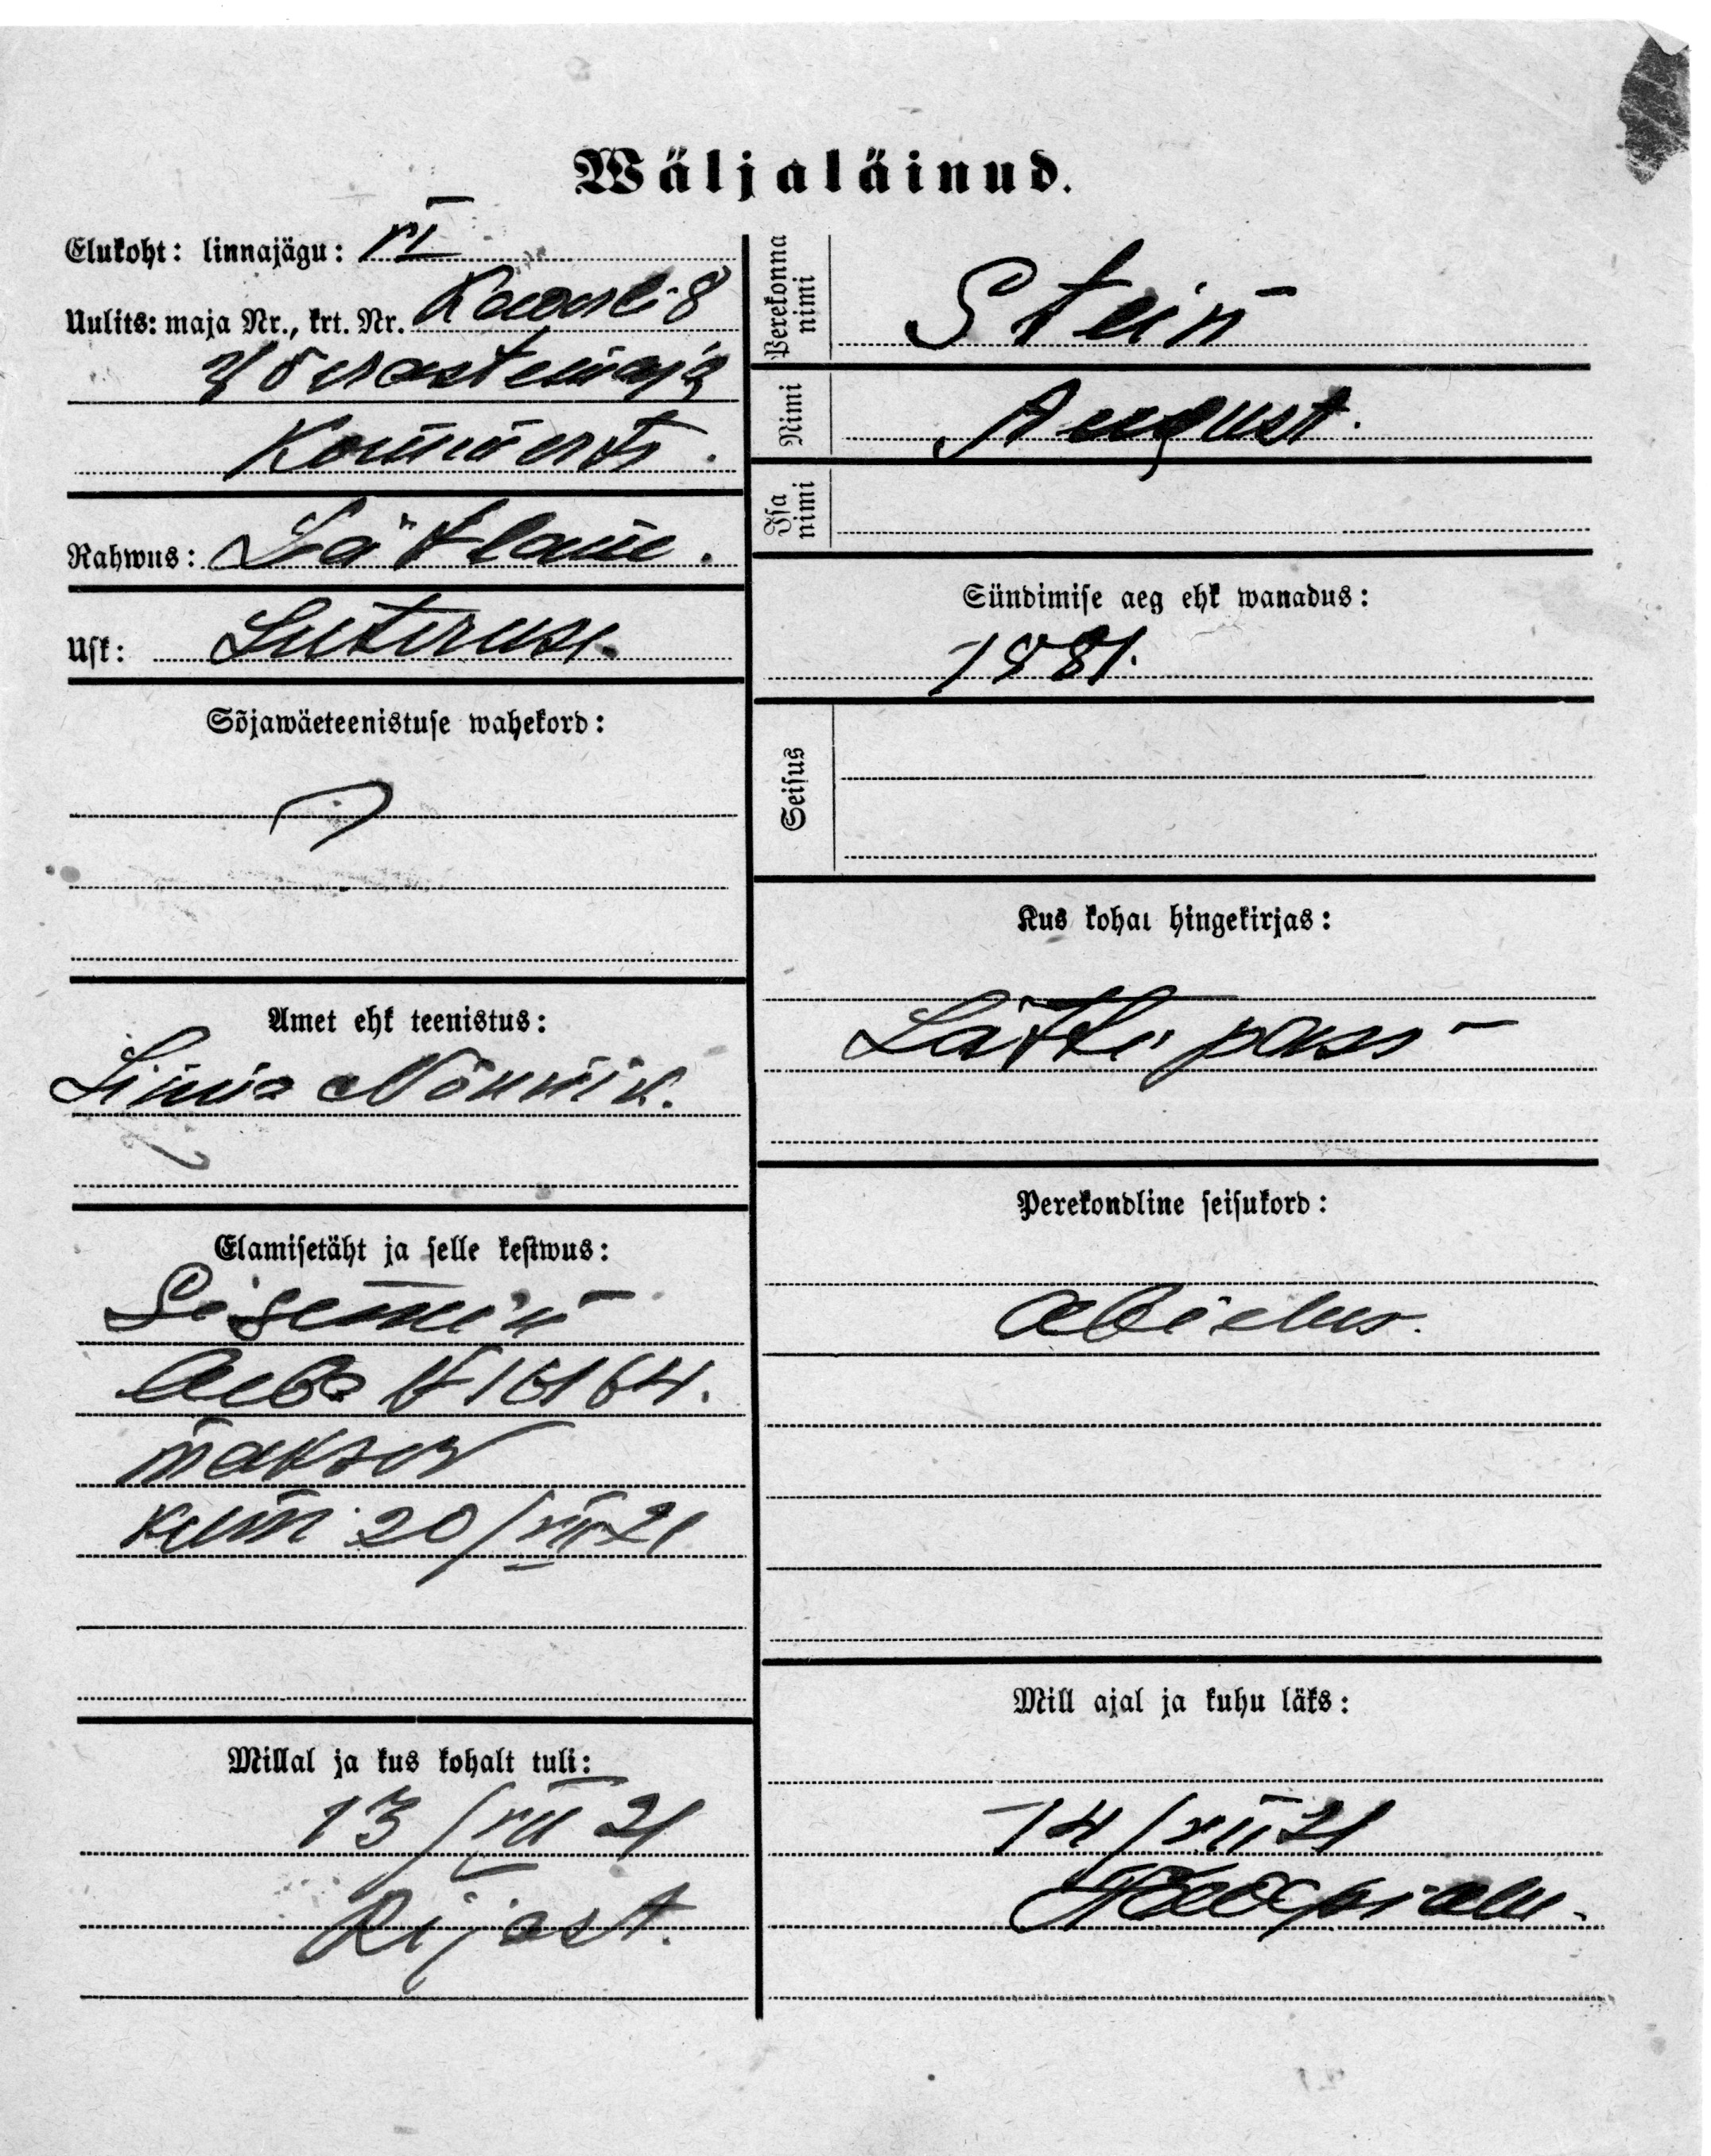 Wäljaläinud.
Elukoht: linnajägu: VI
Uulits: maja Nr., krt. Nr.
Wõerastemaja
Kommerts.
Rahwus: Lätlane.
Usk: Luteruse.
Sõjawäeteenistuse wahekord:
Amet ehk teenistus:
Linna Nõunik.
Elamisetäht ja selle kestwus:
maksev
kuni 20/VII 21
Millal ja kus kohalt tuli:
13/VII 21
Rijast.
Perekonna nimi Stein
Nimi August.
Isa nimi
Sündimise aeg ehk wanadus:
1881.
Seisus
Kus kohal hingekirjas:
Lätti pass
Perekondline seisukord:
abielus.
Mill ajal ja kuhu läks:
14/VII 21